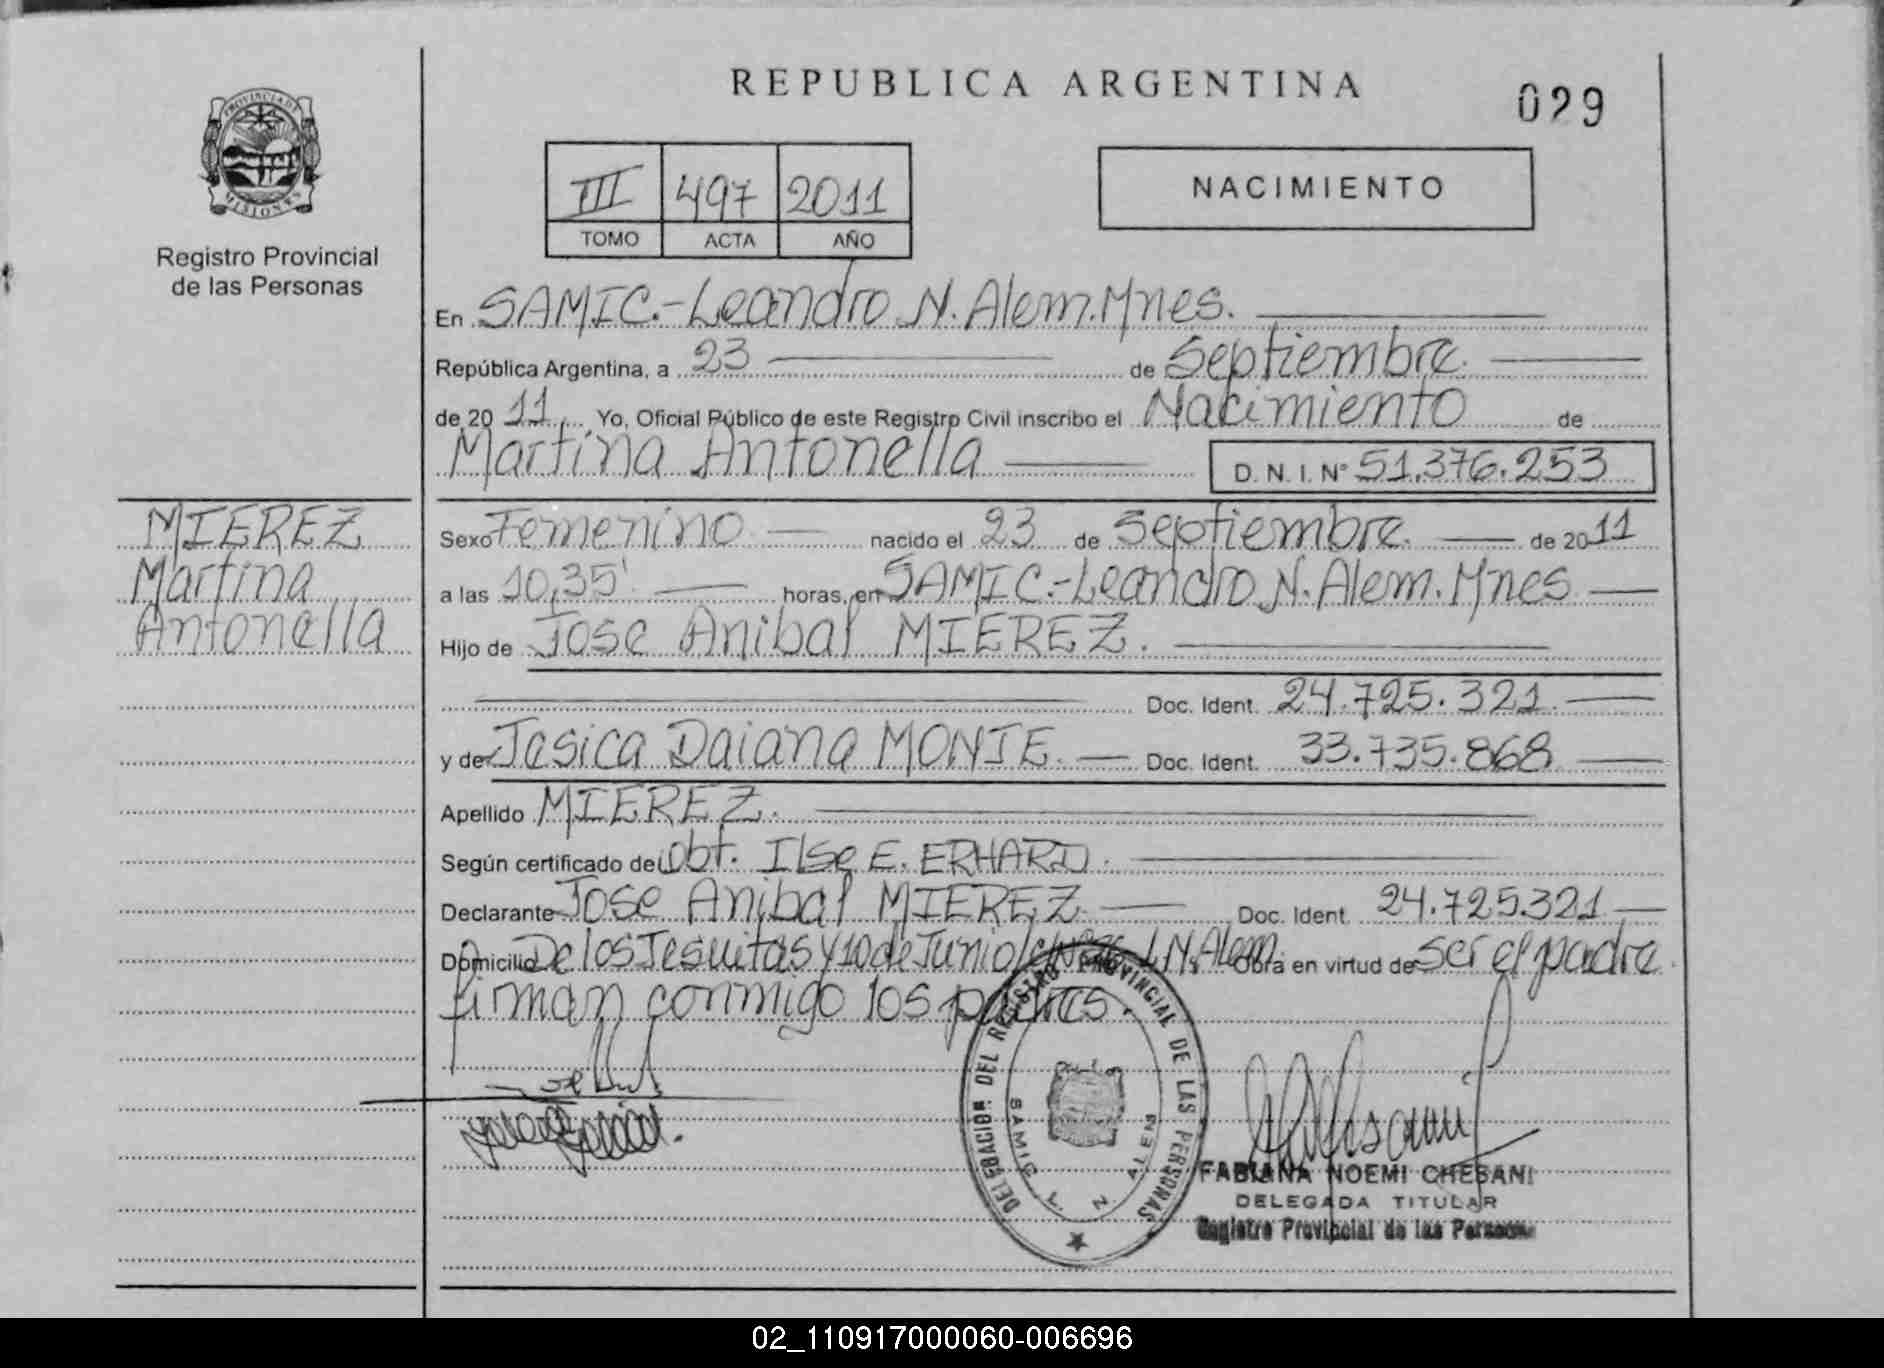 REPUBLICA ARGENTINA
029
PROVINCIA DE
MISIONES
Registro Provincial
de las Personas
III 497 2011
TOMO ACTA AÑO
NACIMIENTO
En SAMIC.-Leandro N. Alem.Mnes.
República Argentina, a 23 de Septiembre.
de 20 11 Yo, Oficial Público de este Registro Civil inscribo el Nacimiento de
Martina Antonella D. N. I. Nº 51.376.253
MIEREZ
Martina
Antonella
Sexo Femenino nacido el 23 de Septiembre. de 2011
a las 10,35' horas, en SAMIC.-Leandro N. Alem. Mnes
Hijo de Jose Anibal MIEREZ.
Doc. Ident. 24.725.321.
y de Jesica Daiana MONTE. Doc. Ident. 33.735.868
Apellido MIEREZ.
Según certificado de Obt. Ilse E. ERHARD.
Declarante Jose Anibal MIEREZ Doc. Ident. 24.725.321
Domicilio De los Jesuitas y 10 de Junio L.N.Alem. Obra en virtud de ser el padre.
firman conmigo los padres.
DELEGACION DEL REGISTRO PROVINCIAL DE LAS PERSONAS
SAMIC L. N. ALEM
FABIANA NOEMI CHESANI
DELEGADA TITULAR
Registro Provincial de las Personas
02_110917000060-006696